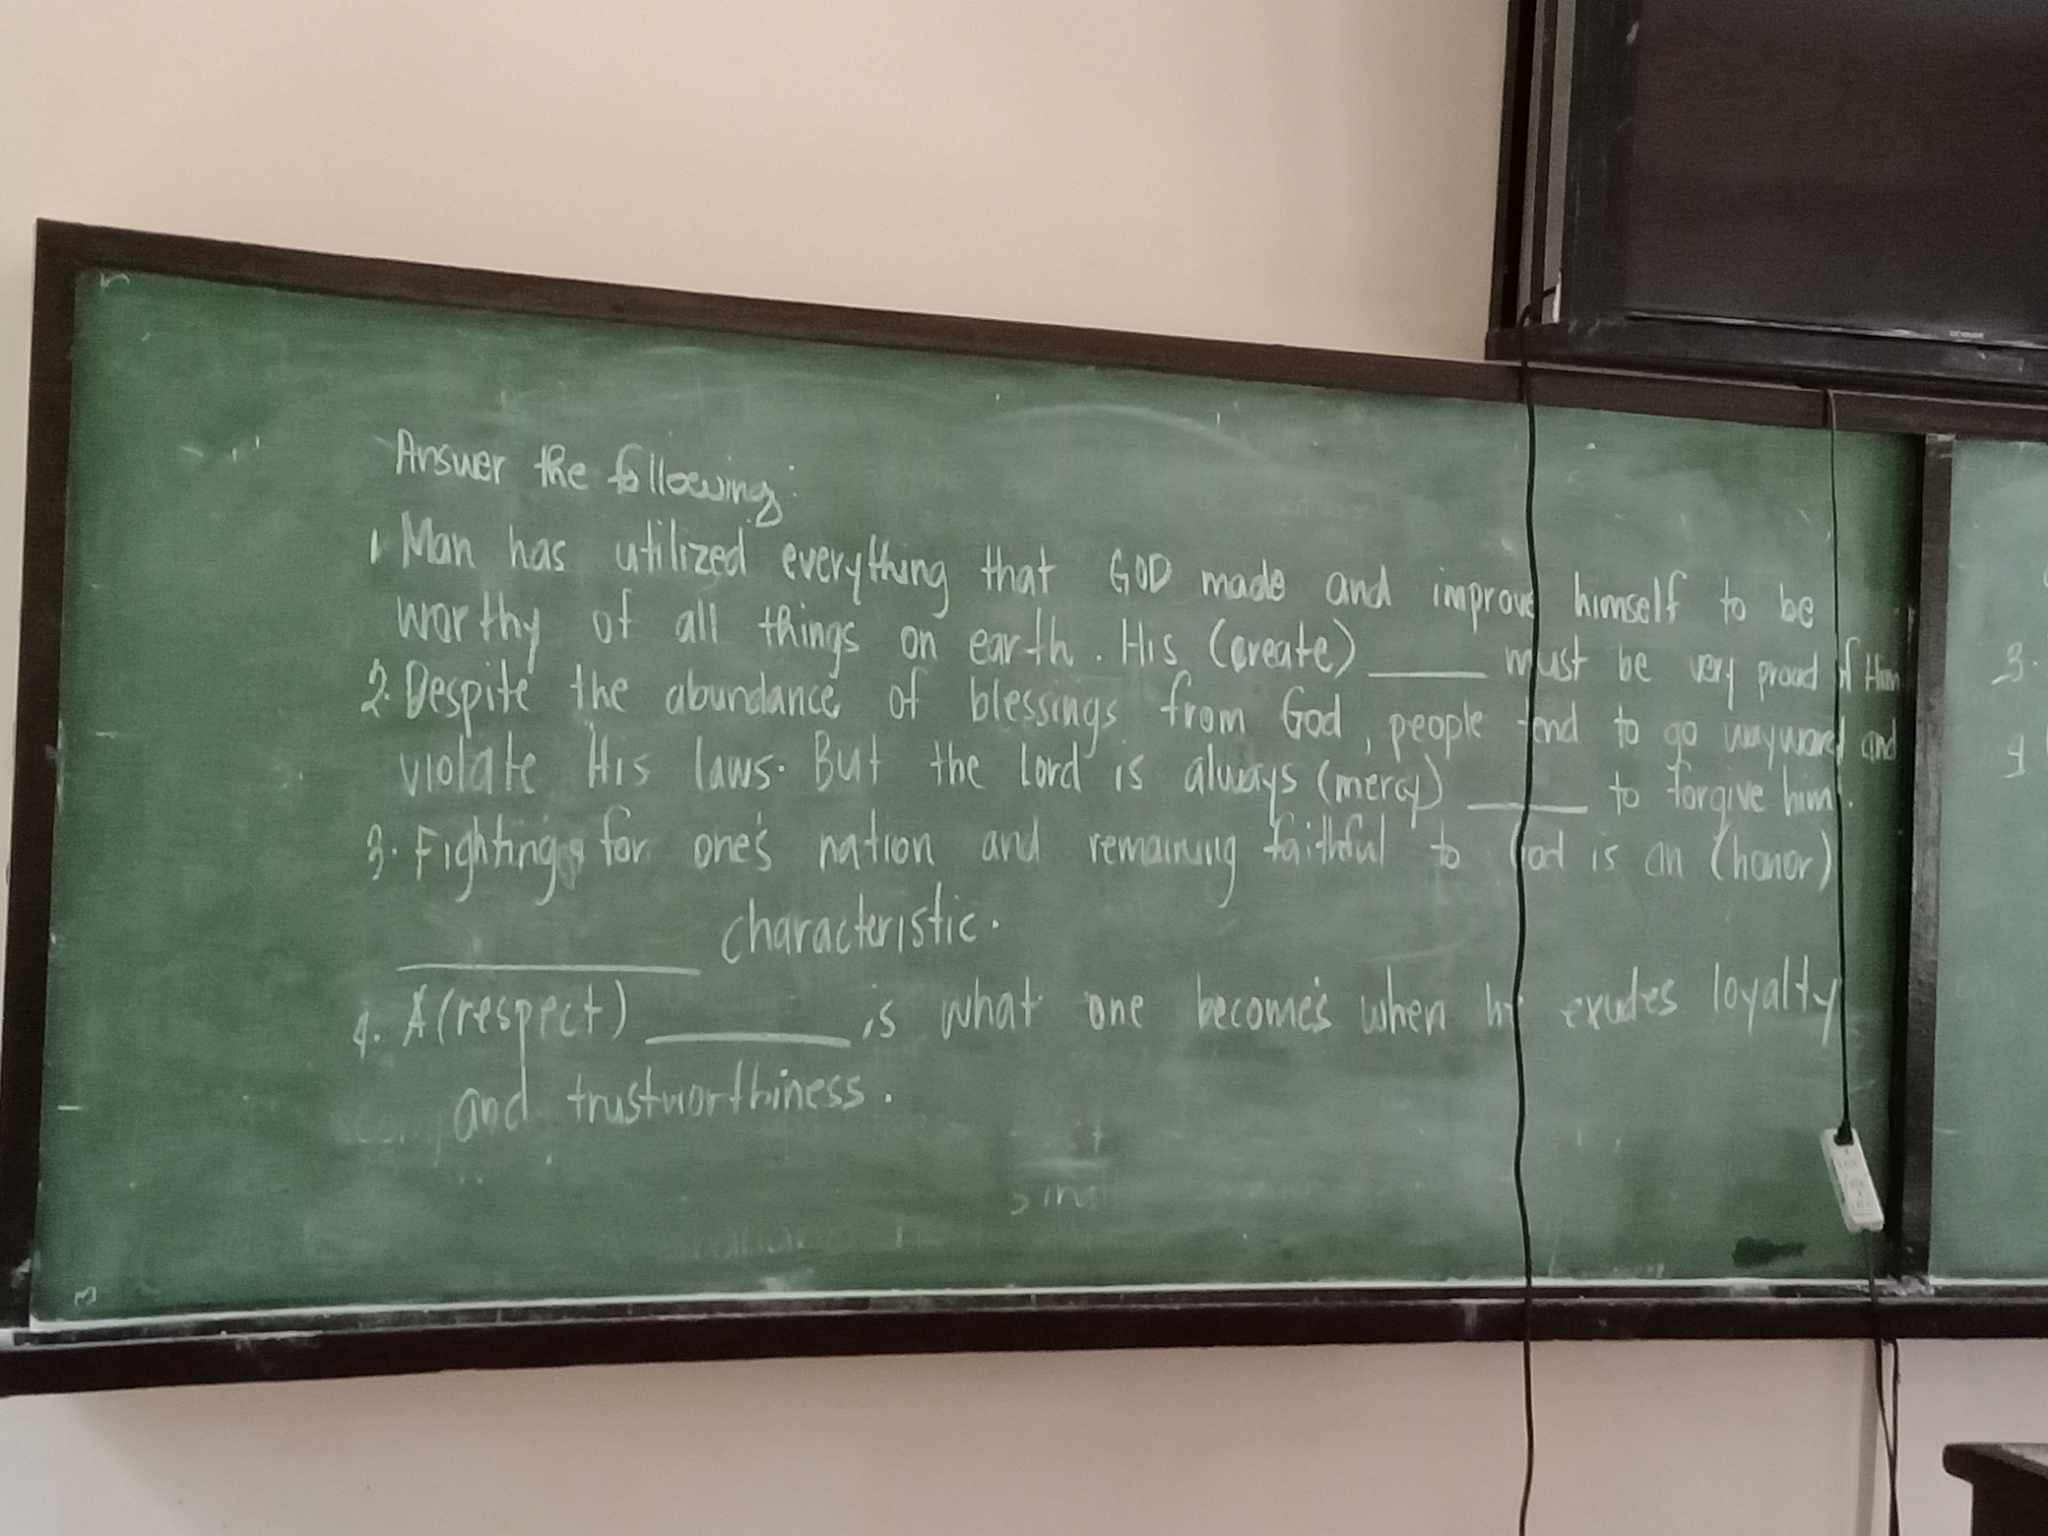 Answer the following:
1. Man has utilized everything that GOD made and improve himself to be
worthy of all things on earth. His (create) ______ must be very proud of Him
2. Despite the abundance of blessings from God, people tend to go wayward and
violate His laws. But the Lord is always (mercy) ______ to forgive him.
3. Fighting for one's nation and remaining faithful to God is an (honor)
______ characteristic.
4. A (respect) ______ is what one becomes when he exudes loyalty
and trustworthiness.
3.